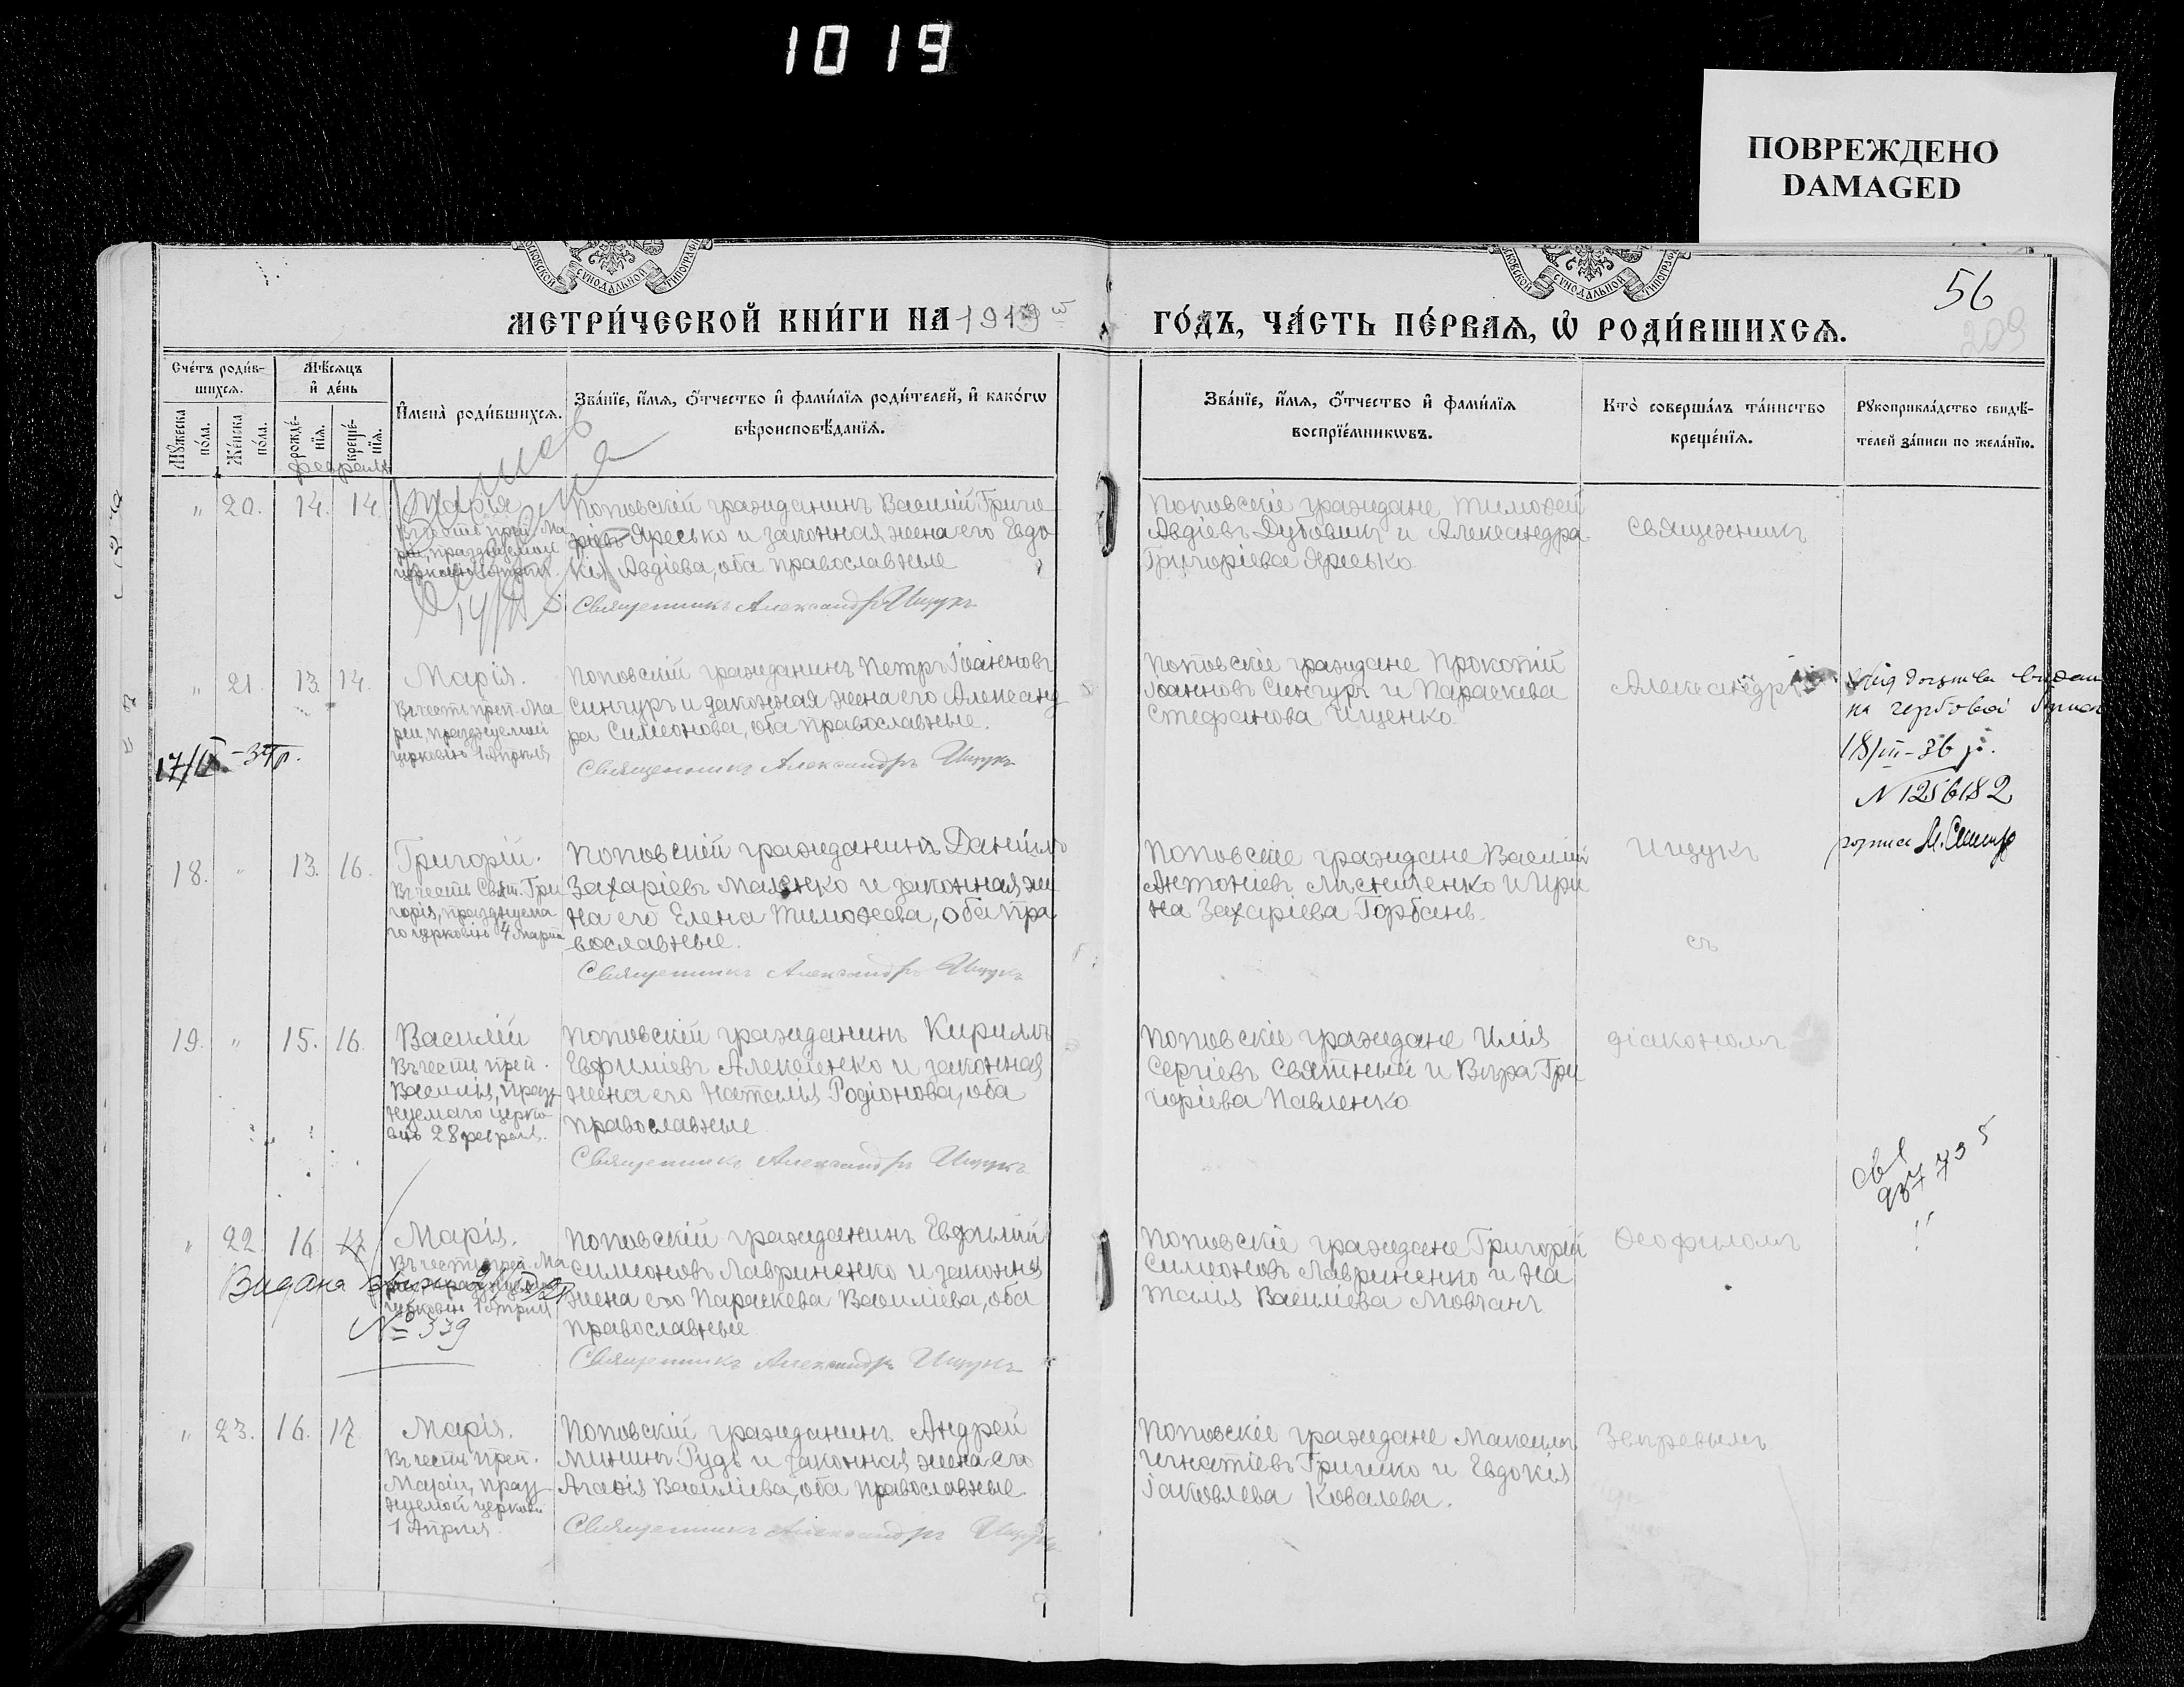 1019
ПОВРЕЖДЕНО
DAMAGED
МОСКОВСКОЙ СѴНОДАЛЬНОЙ ТИПОГРАФІИ
МОСКОВСКОЙ СѴНОДАЛЬНОЙ ТИПОГРАФІИ
56
209
МЕТРИ́ЧЕСКОЙ КНИ́ГИ НА 1919 ГО́ДЪ, ЧА́СТЬ ПЕ́РВАЯ, Ѡ҆ РОДИ́ВШИХСЯ.
Сче́тъ роди́в-
шихся.
Мѣ́сяцъ
и҆ де́нь
Мꙋ́жеска
по́ла.
Же́нска
по́ла.
рожде́-
нїя.
креще́-
нїя.
И҆мена̀ роди́вшихся.
Зва́нїе, и҆́мя, ѻ҆́тчество и҆ фами́лїя роди́телей, и҆ како́гѡ
вѣроисповѣ́данїя.
Зва́нїе, и҆́мя, ѻ҆́тчество и҆ фами́лїя
воспрїе́мникѡвъ.
Кто̀ соверша́лъ та́инство
креще́нїя.
Рꙋкоприкла́дство свидѣ́-
телей за́писи по жела́нїю.
февраль
" 20. 14. 14. Марія
Въ честь преп. Ма
ріи, празднуемой
Поповскій гражданинъ Василій Григо
ріевъ Яресько и законная жена его Евдо
кія Авдіева, оба православные
Священникъ Александръ Ищукъ
Поповскіе граждане Тимоѳей
Авдіевъ Дубовикъ и Александра
Григоріева Яресько
Священникъ
" 21. 13. 14. Марія.
Въ честь преп. Ма
ріи, празднуемой
церковію 1 Апрѣля
Поповскій гражданинъ Петръ Іоанновъ
Сингуръ и законная жена его Александ
ра Симеонова, оба православные.
Священникъ Александръ Ищукъ
Поповскіе граждане Прокопій
Іоанновъ Сингуръ и Параскева
Стефанова Ищенко
Александръ
на гербовой
18/III-36 р.
N 1256182
18. " 13. 16. Григорій.
Въ честь Свят. Гри
горія, празднуема
го церковію 4 Марта
Поповскій гражданинъ Даніилъ
Захаріевъ Маленко и законная же
на его Елена Тимоѳеева, оба пра
вославные.
Священникъ Александръ Ищукъ
Поповскіе граждане Василій
Антоніевъ Лисниченко и Ири
на Захаріева Горбань.
Ищукъ
съ
19. " 15. 16. Василій
Въ честь преп.
Василія, празд
нуемаго церко
вію 28 февраля.
Поповскій гражданинъ Кириллъ
Евфиміевъ Алексѣенко и законная
жена его Наталія Родіонова, оба
православные
Священникъ Александръ Ищукъ
Поповскіе граждане Илія
Сергіевъ Святный и Вѣра Гри
горіева Павленко
діакономъ
" 22. 16. 17. Марія.
Въ честь преп. Ма
церковію 1 Апрѣля
Видана
№ 339
Поповскій гражданинъ Евфимій
Симеоновъ Лавриненко и законная
жена его Параскева Василіева, оба
православные
Священникъ Александръ Ищукъ
Поповскіе граждане Григорій
Симеоновъ Лавриненко и На
талія Василіева Мовчанъ
Ѳеофиломъ
" 23. 16. 17. Марія.
Въ честь преп.
Маріи, празд
нуемой церковію
1 Апрѣля.
Поповскій гражданинъ Андрей
Мининъ Рудь и законная жена его
Агаѳія Василіева, оба православные
Священникъ Александръ Ищукъ
Поповскіе граждане Максимъ
Игнатіевъ Гришко и Евдокія
Іаковлева Ковалева.